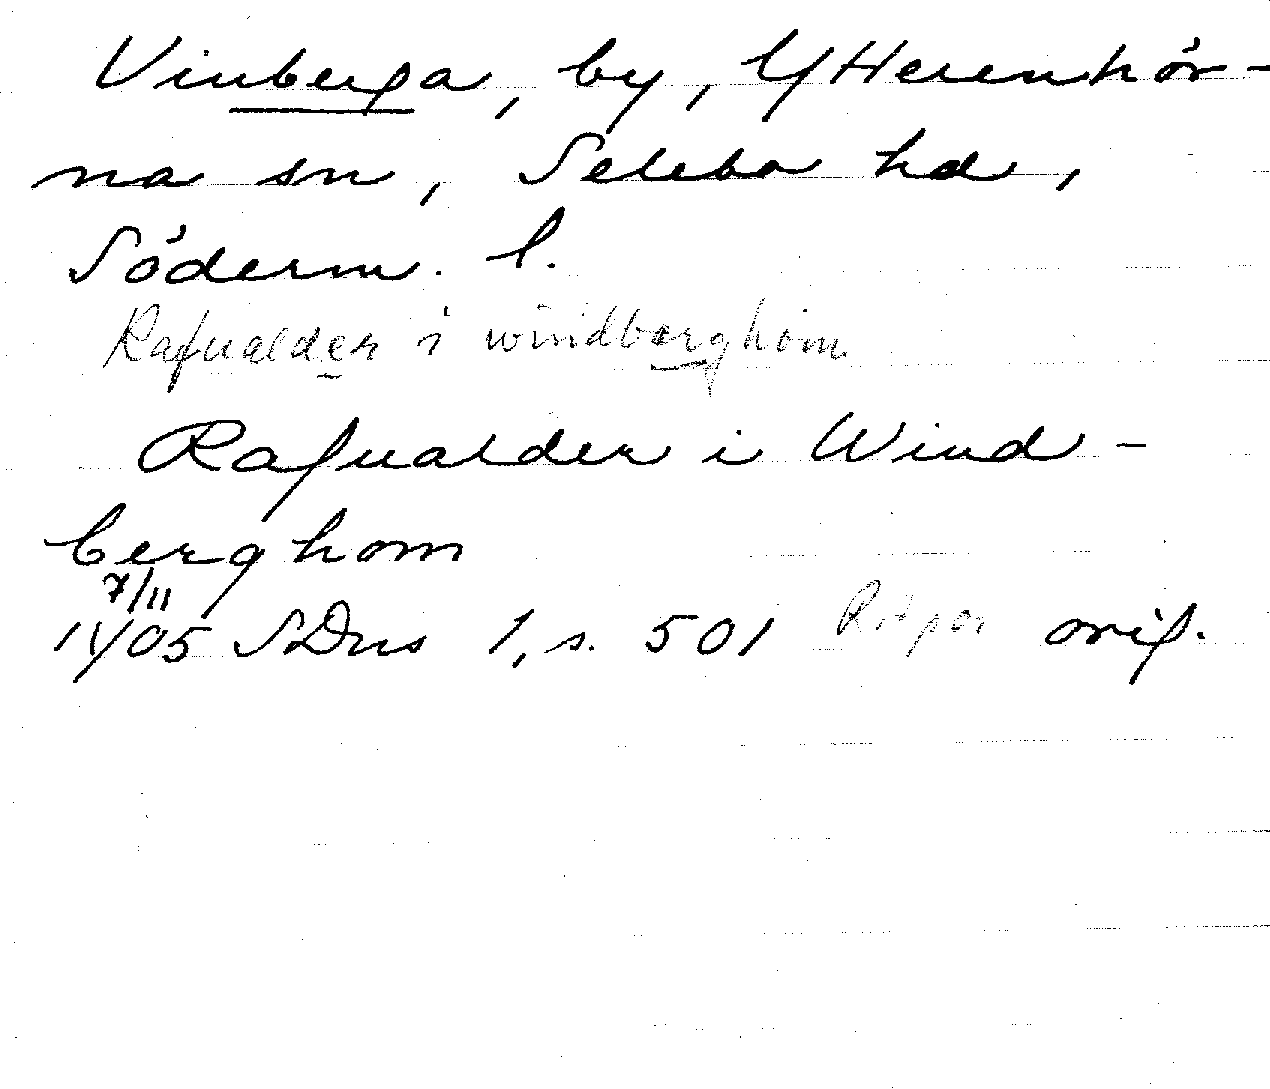 Vinberga, by, Ytterenhör-
na sn, Selebo hd,
Söderm. l.
Rafualder i windberghom
Rafualder i Wind-
berghom
7/11
1405 SDns 1, s. 501 orig.